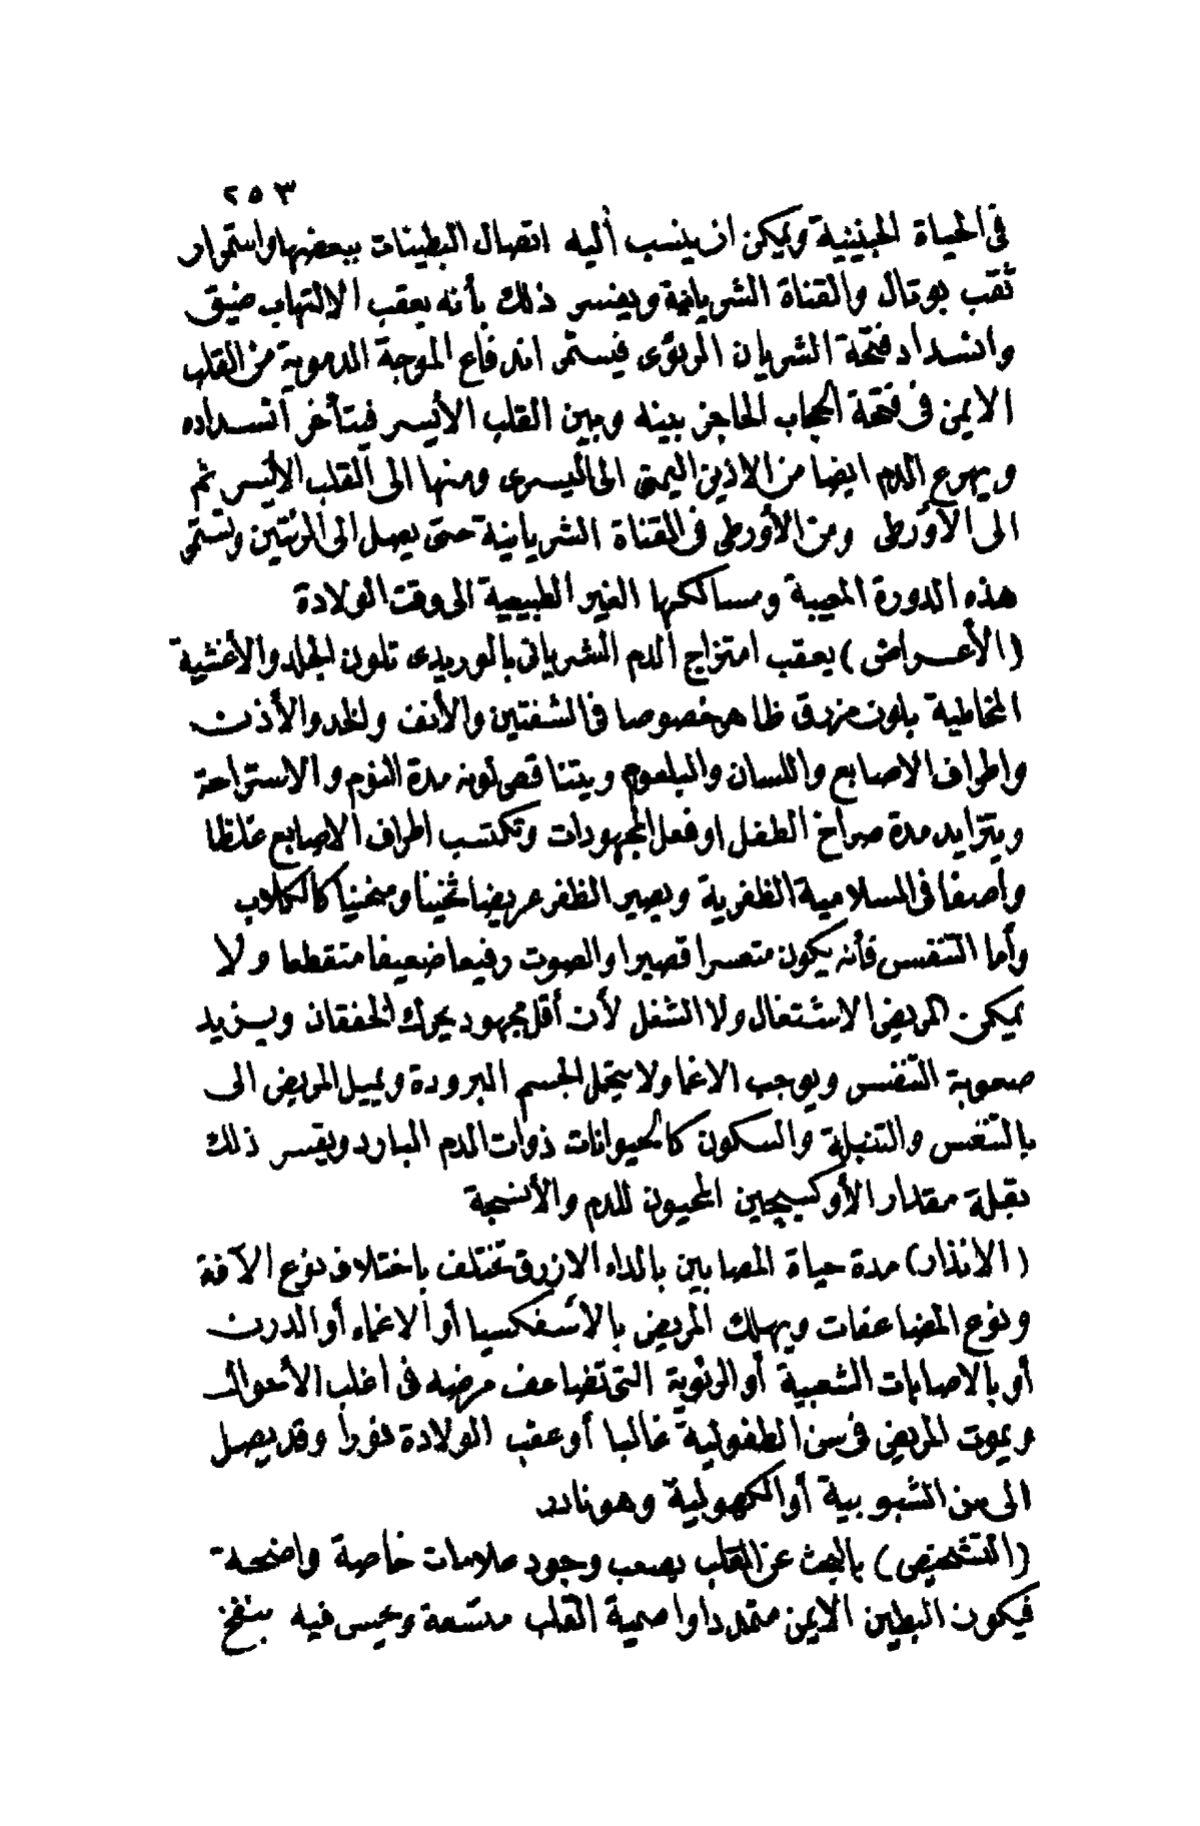 ٢٥٣
فى الحياة الجنينية ويمكن ان ينسب أليه اتصال البطينات ببعضها واستمرار
ثقب بوتال والقناة الشريانية ويفسر ذلك بأنه يعقب الالتهاب ضيق
وانسداد فتحة الشريان الرئوى فيستمر اندفاع الموجة الدموية من القلب
الايمن فى فتحة الحجاب الحاجز بينه وبين القلب الأيسر فيتأخر انسداده
ويهرع الدم ايضا من الاذين اليمنى الى اليسرى ومنها الى القلب الأيسر ثم
الى الأورطى ومن الأورطى فى القناة الشريانية حتى يصل الى الرئتين وتستمر
هذه الدورة المعيبة ومسالكها الغير الطبيعية الى وقت الولادة
(الأعراض) يعقب امتزاج الدم الشريانى بالوريدى تلون الجلد والأغشية
المخاطية بلون مزرق ظاهر خصوصا فى الشفتين والأنف والخد والأذن
واطراف الاصابع واللسان والبلعوم ويتناقص لونه مدة النوم والاستراحة
ويتزايد مدة صراخ الطفل او فعل المجهودات وتكتسب اطراف الاصابع غلظا
وأصفا فى المسلامية الظفرية ويصير الظفر عريضا ثخينا ومنحنيا كالكلاب
وأما التنفس فأنه يكون متعسرا قصيرا والصوت رفيعا ضعيفا متقطعا ولا
يمكن المريض الاشتغال ولا الشغل لأن أقل مجهود يحرك الخفقان ويزيد
صعوبة التنفس ويوجب الاغما ولا يتحمل الجسم البرودة ويميل المريض الى
بالتنفس والتنبلة والسكون كالحيوانات ذوات الدم البارد ويفسر ذلك
بقلة مقدار الأوكسيجين المحيون للدم والأنسجة
(الانذار) مدة حياة المصابين بالداء الازرق تختلف باختلاف نوع الآفة
ونوع المضاعفات ويهلك المريض بالأسفكسيا أو الاغماء أو الدرن
أو بالاصابات الشعبية أو الرئوية التى تضاعف مرضه فى اغلب الأحوال
ويموت المريض فى سن الطفولية غالبا أو عقب الولادة فورا وقد يصل
الى سن الشبوبية أو الكهولية وهو نادر
(التشخيص) بالبحث عن القلب يصعب وجود علامات خاصة واضحة
فيكون البطين الايمن متمددا واصمية القلب متسعة ويحس فيه بنفخ